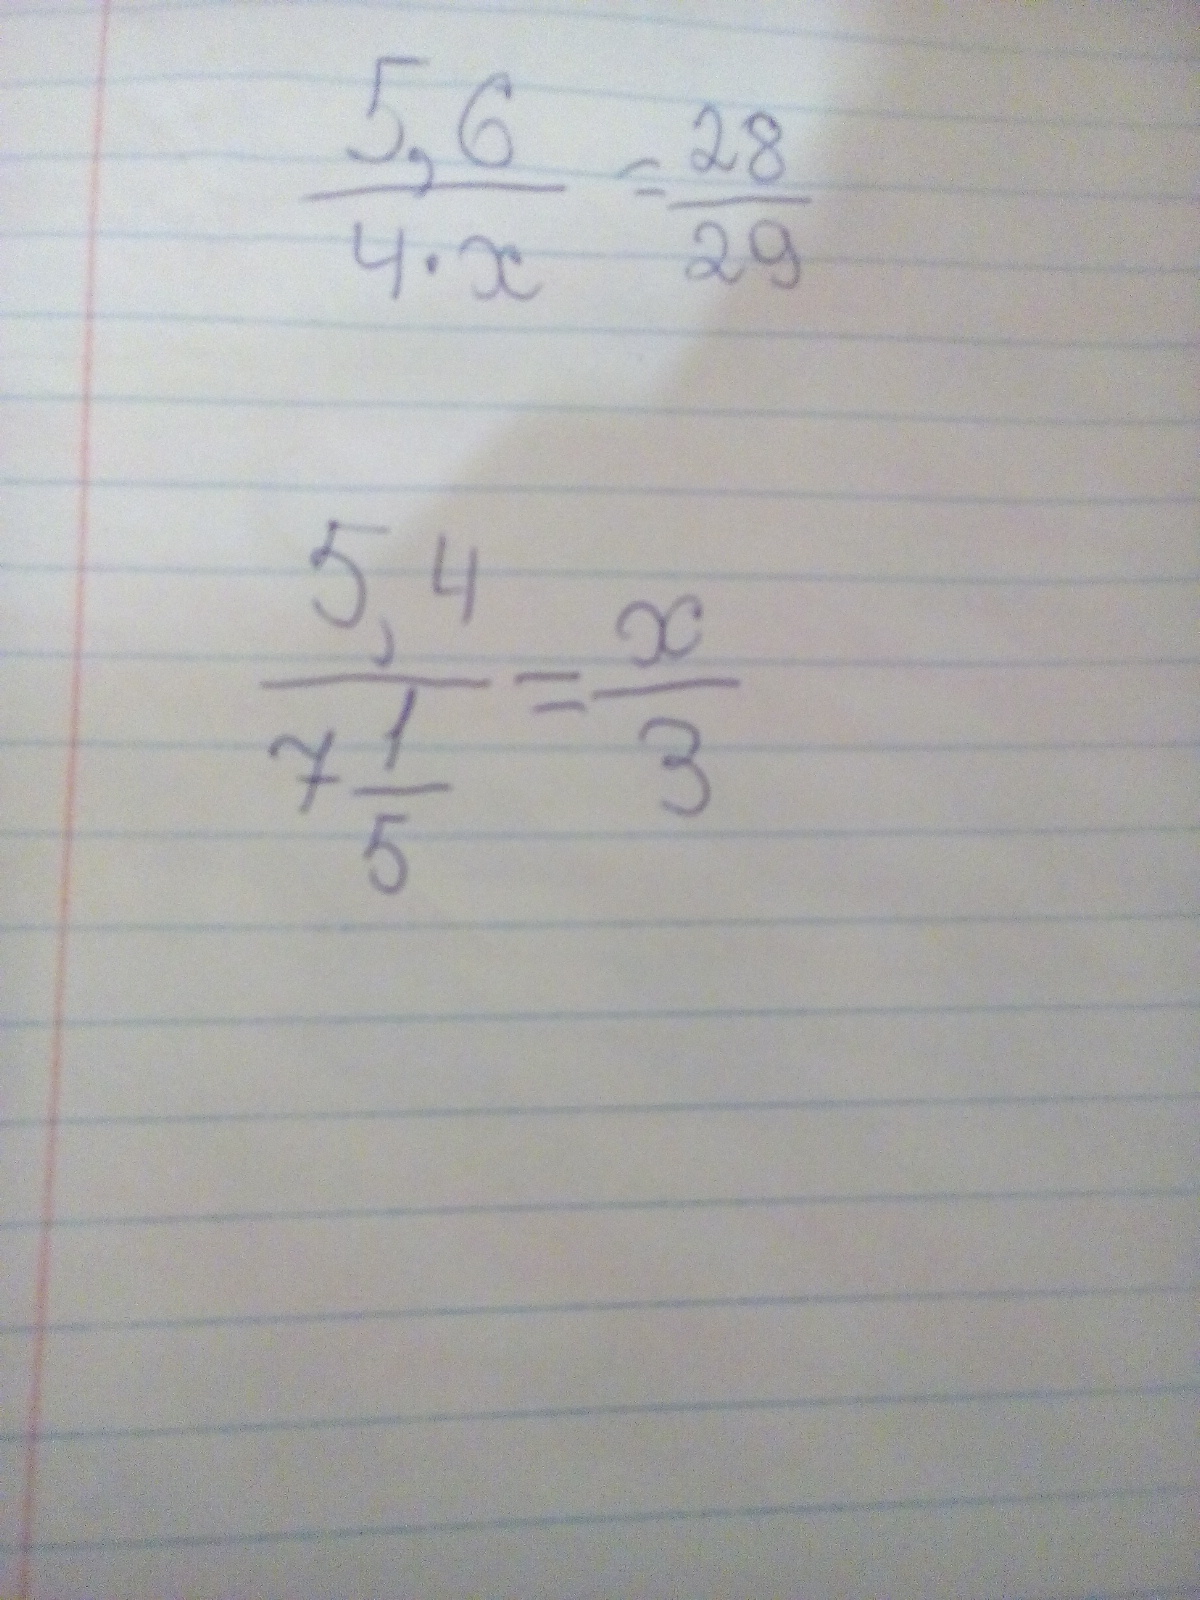 5,6 / 4·x = 28 / 29
5,4 / 7 1/5 = x / 3